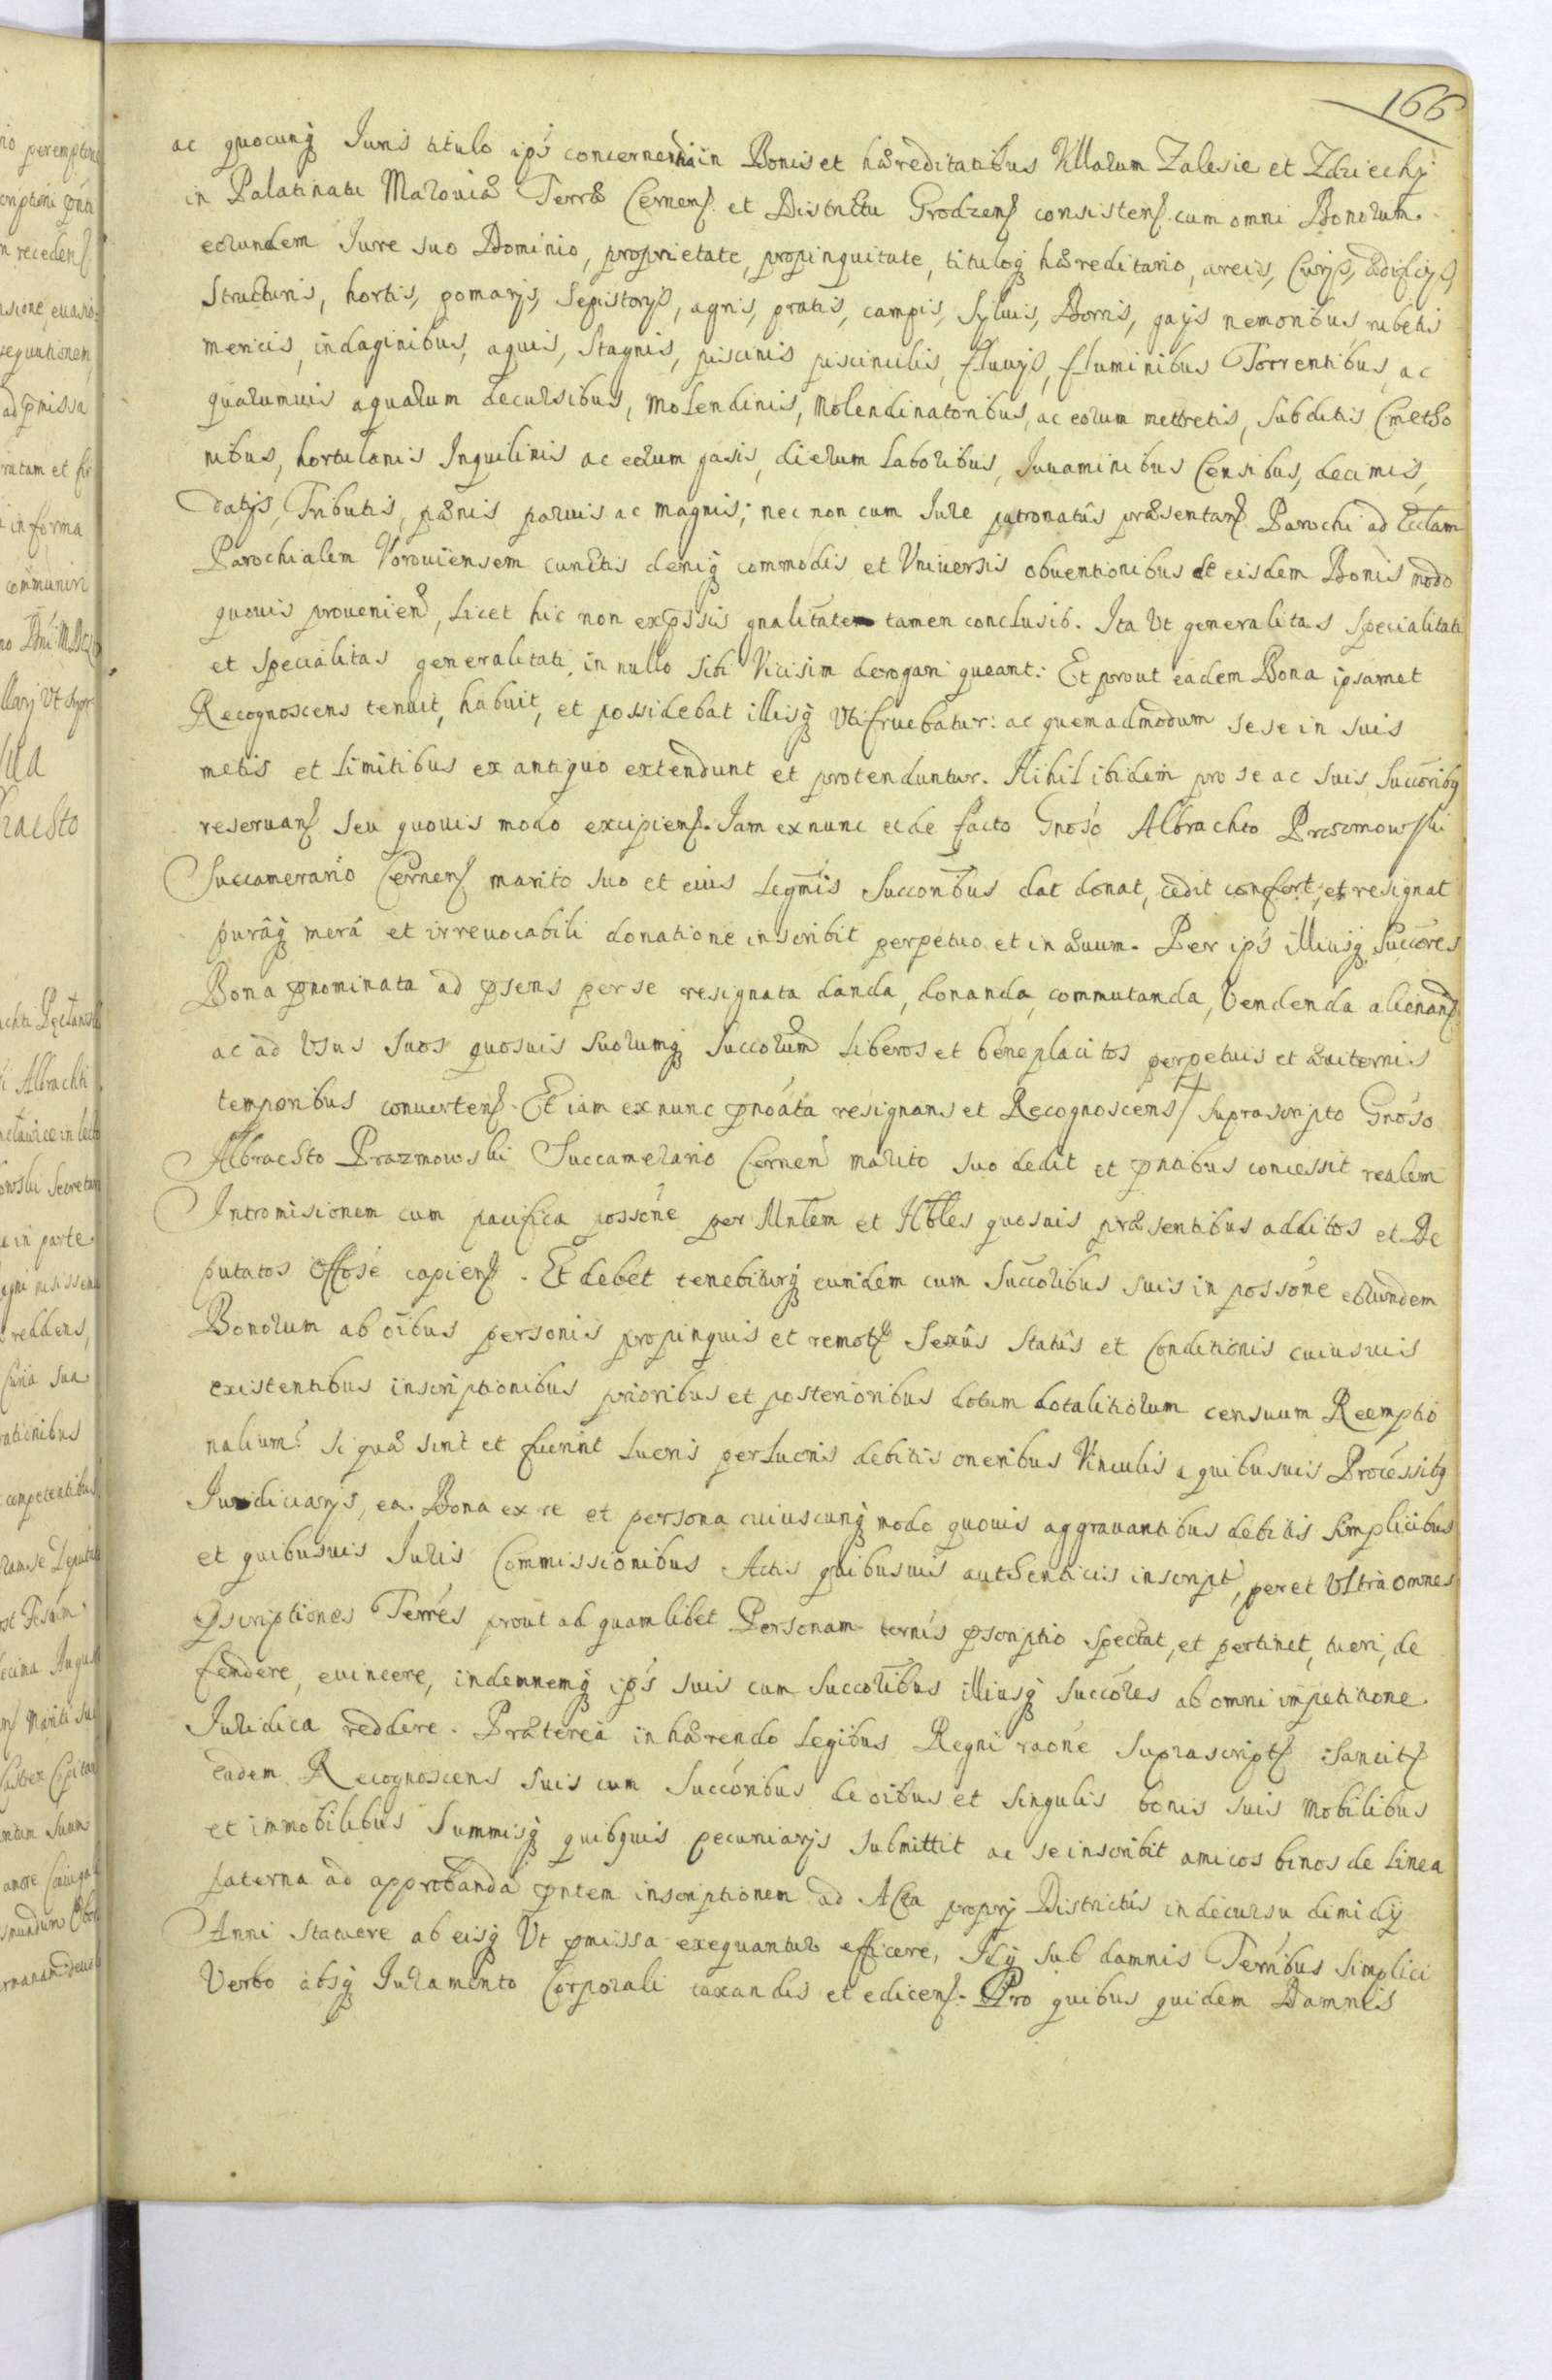 166
ac quocunq Juris titulo ips concernentia in Bonis et hæreditatibus Villarum Zalesie et Zdziechy
in Palatinatu Mazoviæ Terræ Cernens et Districtu Grodzens consistens cum omni Bonorum
eorundem Jure suo Dominio, proprietate, propinquitate, tituloq hæreditario, areis, Curijs, ædificijs,
Structuris, hortis, pomarijs, Sepistorijs, agris, pratis, campis, Sylvis, Borris, gajis nemoribus rubetis
mericis, indaginibus, aquis, Stagnis, piscinis piscinulis, fluvijs, fluminibus Torrentibus, ac
quarumvis aquarum decursibus, Molendinis, Molendinatoribus, ac eorum mettretis, Subditis Cmetho
nibus, hortulanis Inquilinis ac eorum gasis, dierum laboribus, Juvaminibus Censibus, decimis,
datijs, Tributis, pænis parvis ac magnis; nec non cum Jure patronatûs præsentans Parochi ad Ecclam
Parochialem Worouiensem cunctis deniq commodis et Vniuersis obuentionibus de eisdem Bonis modo
quouis prouenien, licet hic non expssis gnalitate tamen conclusis. Ita Vt generalitas Specialitati
et specialitas generalitati, in nullo sibi Vicisim derogari queant: Et prout eadem Bona ipsamet
Recognoscens tenuit, habuit, et possidebat illisq Vtifruebatur: ac quemadmodum sese in suis
metis et limitibus ex antiquo extendunt et protenduntur. Nihil ibidem pro se ac suis Succoribq
reseruans seu quouis modo excipiens. Jam exnunc et de facto Gnoso Albrachto Prazmowski
Succamerario Cernens marito suo et eius legmis Succoribus dat donat, cedit confert, et resignat
purâq merâ et irreuocabili donatione inscribit perpetuo et in æuum. Per ips illiusq Succores
Bona pnominata ad psens per se resignata danda, donanda, commutanda, Vendenda alienans
ac ad Vsus suos quosuis suorumq succorum liberos et beneplacitos perpetuis et æuiternis
temporibus conuertens. Et iam exnunc pnoata resignans et Recognoscens suprascripto Gnoso
Albrachto Prazmowski Succamerario Cernens marito suo dedit et pntibus concessit realem
Intromisionem cum pacifica possone per Mnlem et Nbles quosuis præsentibus additos et De
putatos offose capiens. Et debet tenebiturq eundem cum Succoribus suis in possone eorundem
Bonorum ab oibus personis propinquis et remotis Sexûs Statûs et Conditionis cuiusuis
existentibus inscriptionibus prioribus et posterioribus dotum dotalitiorum censuum Reemptio
nalium si quæ sint et fuerint lucris perlucris debitis oneribus Vinculis quibusuis Processibq
Juridiciarijs, ea Bona ex re et persona cuiuscunq modo quouis aggrauantibus debitis simplicibus
et quibusuis Juris Commissionibus Actis quibusuis authenticis inscript, per et Vltra omnes
pscriptiones Terres prout ad quamlibet Personam terris pscriptio spectat, et pertinet, tueri, de
fendere, euincere, indemnemq ips suis cum Succoribus illiusq succores ab omni impetitione
Juridica reddere. Præterea inhærendo Legibus Regni raone suprascriptis sancitis
eadem Recognoscens suis cum Succoribus de oibus et singulis bonis suis mobilibus
et immobilibus summisq quibquis pecuniarijs submittit ac se inscribit amicos binos de linea
paterna ad approbanda pntem inscriptionem ad Acta proprij Districtûs in decursu dimidij
Anni Statuere ab eisq Vt pmissa exequantur efficere, Idq sub damnis Terribus simplici
Verbo absq Juramento Corporali taxandis et edicens. Pro quibus quidem Damnis